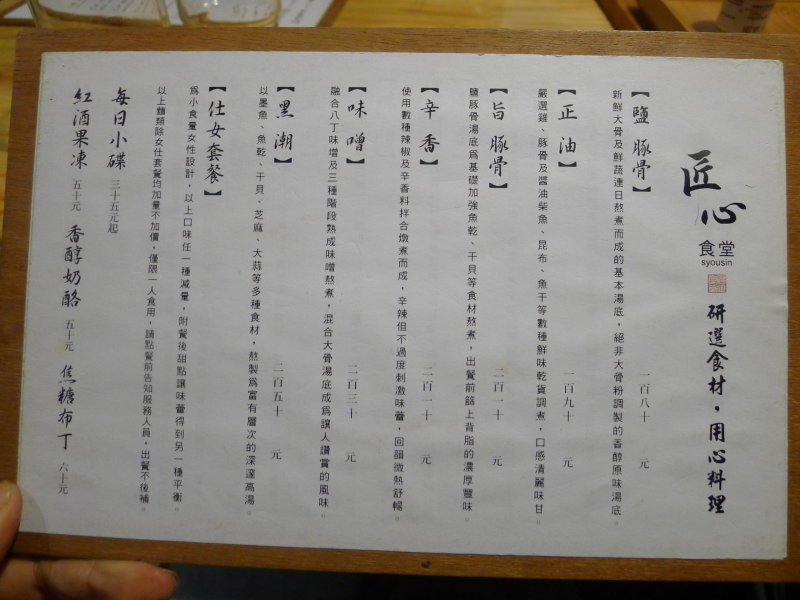 匠心
食堂
syousin
研選食材，用心料理
【鹽豚骨】 一百八十 元
新鮮大骨及鮮蔬連日熬煮而成的基本湯底，絕非大骨粉調製的香醇原味湯底。
【正油】 一百九十 元
嚴選雞、豚骨及醬油柴魚、昆布、魚干等數種鮮味乾貨調煮，口感清麗味甘。
【旨豚骨】 二百一十 元
鹽豚骨湯底為基礎加強魚乾、干貝等食材熬煮，出餐前篩上背脂的濃厚豐味。
【辛香】 二百一十 元
使用數種辣椒及辛香料拌合燉煮而成，辛辣但不過度刺激味蕾，回韻微熱舒暢。
【味噌】 二百三十 元
融合八丁味增及三種階段熟成味噌熬煮，混合大骨湯底成為讓人讚賞的風味。
【黑潮】 二百五十 元
以墨魚、魚乾、干貝、芝麻、大蒜等多種食材，熬製為富有層次的深邃高湯。
【仕女套餐】
為小食量女性設計，以上口味任一種減量，附餐後甜點讓味蕾得到另一種平衡。
以上麵類除女仕套餐均加量不加價，僅限一人食用，請點餐前告知服務人員，出餐不後補。
每日小碟 三十五元起
紅酒果凍 五十元 香醇奶酪 五十元 焦糖布丁 六十元